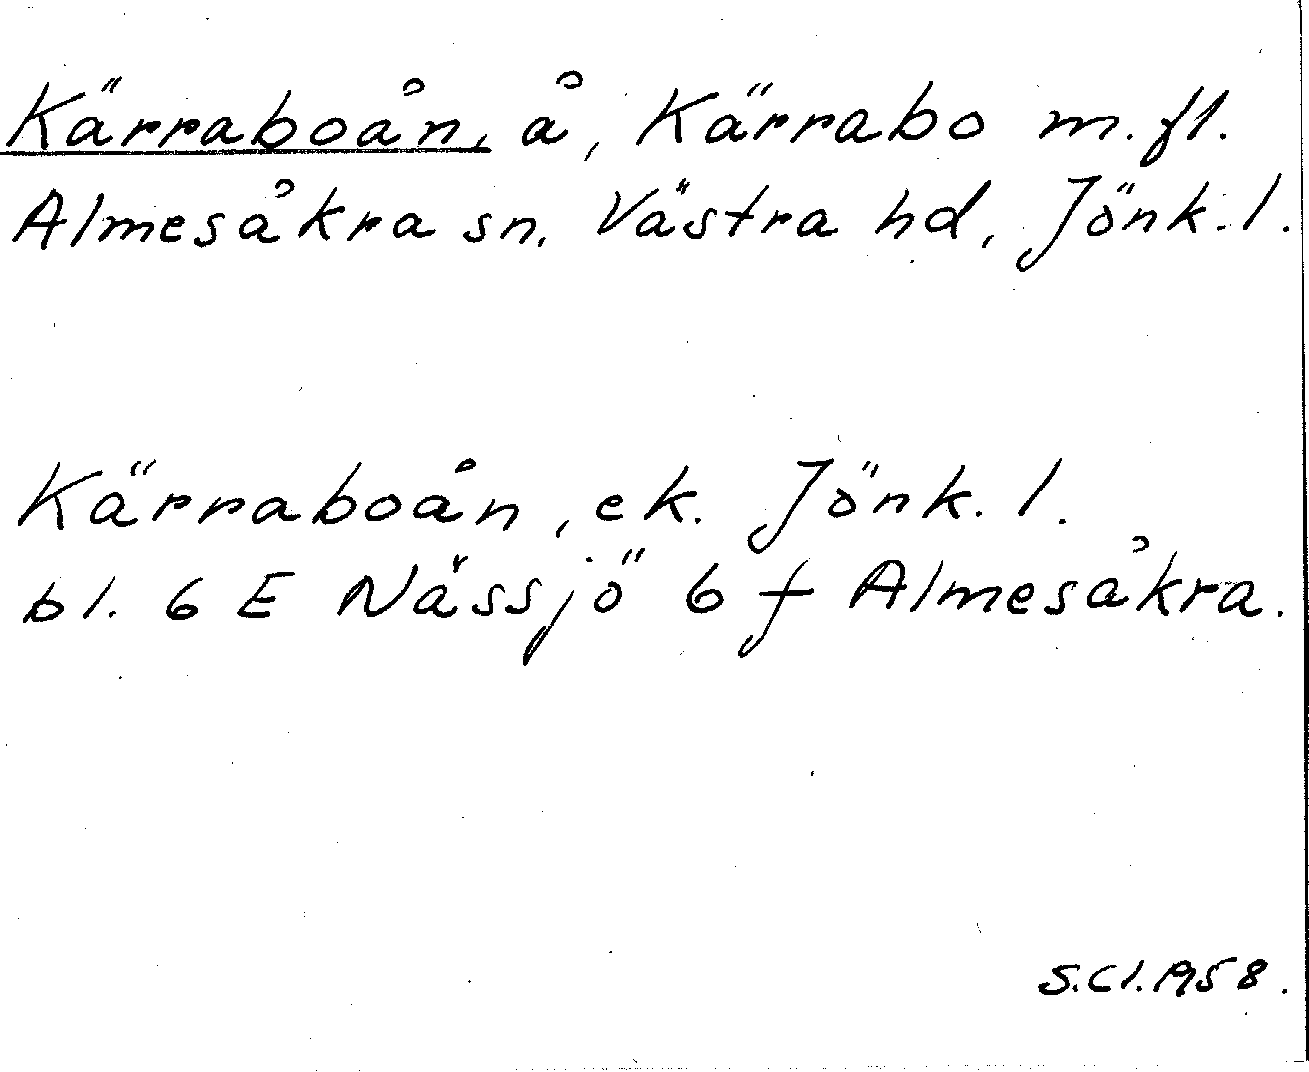 Kärraboån, å, Kärrabo m.fl.
Almesåkra sn, Västra hd, Jönk.l.
Kärraboån, ek. Jönk.l.
bl. 6 E Nässjö 6 f Almesåkra.
S.Cl.1958.